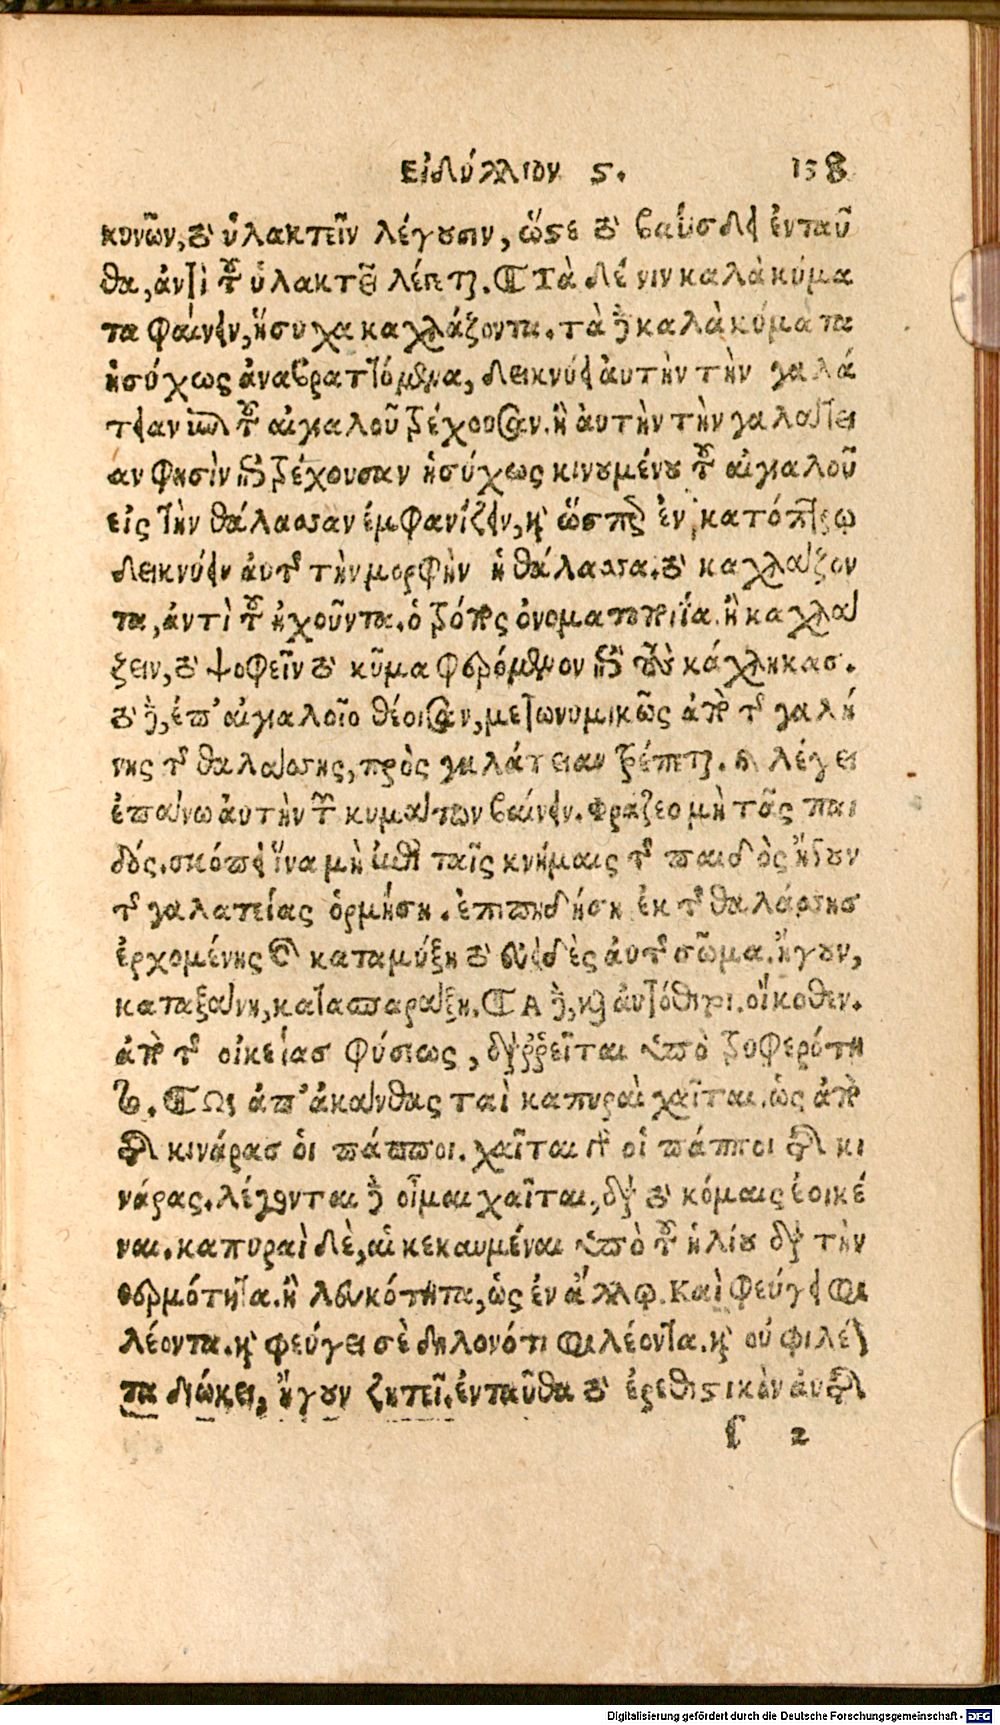 ΕἰδύλλιοΝ ς. 138
κυνῶν, τὸ ὑλακτεῖν λέγουσιν, ὥστε τὸ βαΰσδει ἐνταῦ
θα, ἀντὶ τοῦ ὑλακτεῖ λέγεται. ¶ Τὰ δέ νιν καλὰ κύμα
τα φαίνει, ἥσυχα καχλάζοντα. τὰ δὲ καλὰ κύματα
ἡσύχως ἀναβραττόμενα, δεικνύει ἀυτὴν τὴν γαλά
τειαν ἐπὶ τοῦ αἰγιαλοῦ τρέχουσαν. ἢ ἀυτὴν τὴν γαλάτει
αν φησὶν ἐπιτρέχουσαν ἡσύχως κινουμένου τοῦ αἰγιαλοῦ
εἰς τὴν θάλασσαν ἐμφανίζειν, καὶ ὥσπερ ἐν κατόπτρῳ
δεικνύειν ἀυτῆς τὴν μορφὴν ἡ θάλασσα. τὸ καχλάζον
τα, ἀντὶ τοῦ ἠχοῦντα. ὁ τρόπος ὀνοματοποιΐα. ἢ καχλά
ζειν, τὸ ψοφεῖν τὸ κῦμα φερόμενον ἐπὶ τοὺς κάχληκας.
τὸ δὲ, ἐπ᾽ αἰγιαλοῖο θέοισαν, μετωνυμικῶς ἀπὸ τῆς γαλή
νης τῆς θαλάσσης, πρὸς γαλάτειαν τρέπεται. λέγει
ἐπάνω ἀυτὴν τῶν κυμάτων βαίνειν. Φράζεο μὴ τᾶς παι
δός. σκόπει ἵνα μὴ ἐπὶ ταῖς κνήμαις τῆς παιδὸς ἤγουν
τῆς γαλατείας ὁρμήσῃ. ἐπιπηδήσῃ ἐκ τῆς θαλάσσης
ἐρχομένης καὶ καταμύξῃ τὸ εὐειδὲς ἀυτῆς σῶμα. ἤγουν,
καταξάνῃ, κατασπαράξῃ. ¶ Α δὲ, καὶ ἀυτόθι. οἴκοθεν.
ἀπὸ τῆς οἰκείας φύσεως, διαρρεῖται ὑπὸ τρυφερότη
τος. ¶ Ως ἀπ᾽ ἀκάνθας ταὶ καπυραὶ χαῖται. ὡς ἀπὸ
τῆς κινάρας οἱ πάπποι. χαῖται γὰρ οἱ πάπποι τῆς κι
νάρας. λέγονται δὲ οἶμαι χαῖται, διὰ τὸ κόμαις ἐοικέ
ναι. καπυραὶ δὲ, αἱ κεκαυμέναι ὑπὸ τοῦ ἡλίου διὰ τὴν
θερμότητα. ἢ λευκότητα, ὡς ἐν ἄλλῳ. Καὶ φεύγει φι
λέοντα. καὶ φεύγει σὲ δηλονότι φιλέοντα. καὶ οὐ φιλέον
τα διώκει, ἤγουν ζητεῖ. ἐνταῦθα τὸ ἐρεθιστικὸν ἀυτῆς
ſ 2
Digitalisierung gefördert durch die Deutsche Forschungsgemeinschaft - DFG